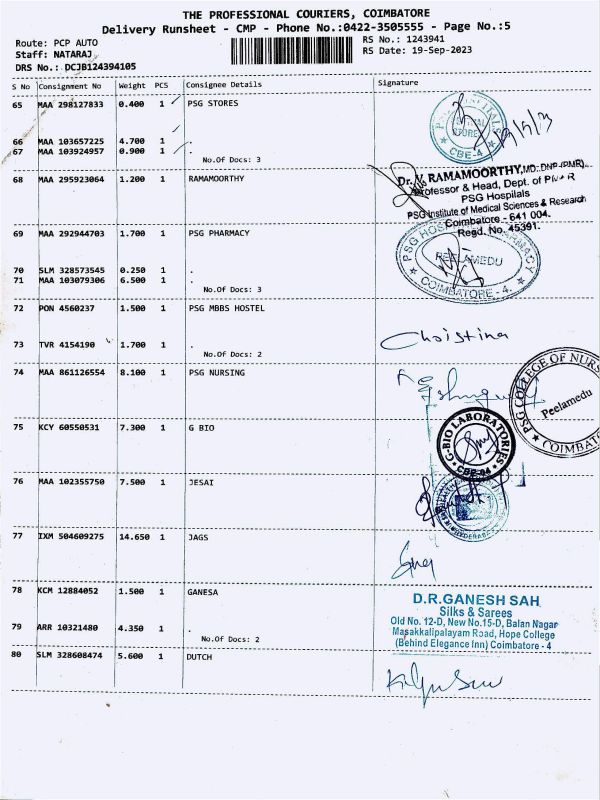 THE PROFESSIONAL COURIERS, COIMBATORE
Delivery Runsheet - CMP - Phone No.:0422-3505555 - Page No.:5
Route: PCP AUTO
RS No.: 1243941
Staff: NATARAJ
RS Date: 19-Sep-2023
DRS No.: DCJB124394105
S No Consignment No Weight PCS Consignee Details Signature
65 MAA 298127833 0.400 1 PSG STORES
STORES
CBE-4
66 MAA 103657225 4.700 1 .
67 MAA 103924957 0.900 1 .
No.Of Docs: 3
68 MAA 295923064 1.200 1 RAMAMOORTHY
Dr. V. RAMAMOORTHY, MD, DNP (PMR),
Professor & Head, Dept. of PM R
PSG Hospilals
PSG Institute of Medical Sciences & Research
Coimbatore - 641 004.
Regd. No. 45391.
69 MAA 292944703 1.700 1 PSG PHARMACY
PSG HOSPITALS PHARMACY
PEELAMEDU
COIMBATORE - 4.
70 SLM 328573545 0.250 1 .
71 MAA 103079306 6.500 1 .
No.Of Docs: 3
72 PON 4560237 1.500 1 PSG MBBS HOSTEL
Christina
73 TVR 4154190 1.700 1 .
No.Of Docs: 2
74 MAA 861126554 8.100 1 PSG NURSING
PSG COLLEGE OF NURS
Peelamedu
COIMBATORE
75 KCY 60550531 7.300 1 G BIO
G-BIO LABORATORIES
CBE-04
76 MAA 102355750 7.500 1 JESAI
77 IXM 504609275 14.650 1 JAGS
78 KCM 12884052 1.500 1 GANESA
D.R.GANESH SAH
Silks & Sarees
Old No. 12-D, New No.15-D, Balan Nagar
Masakkalipalayam Road, Hope College
(Behind Elegance Inn) Coimbatore - 4
79 ARR 10321480 4.350 1 .
No.Of Docs: 2
80 SLM 328608474 5.600 1 DUTCH